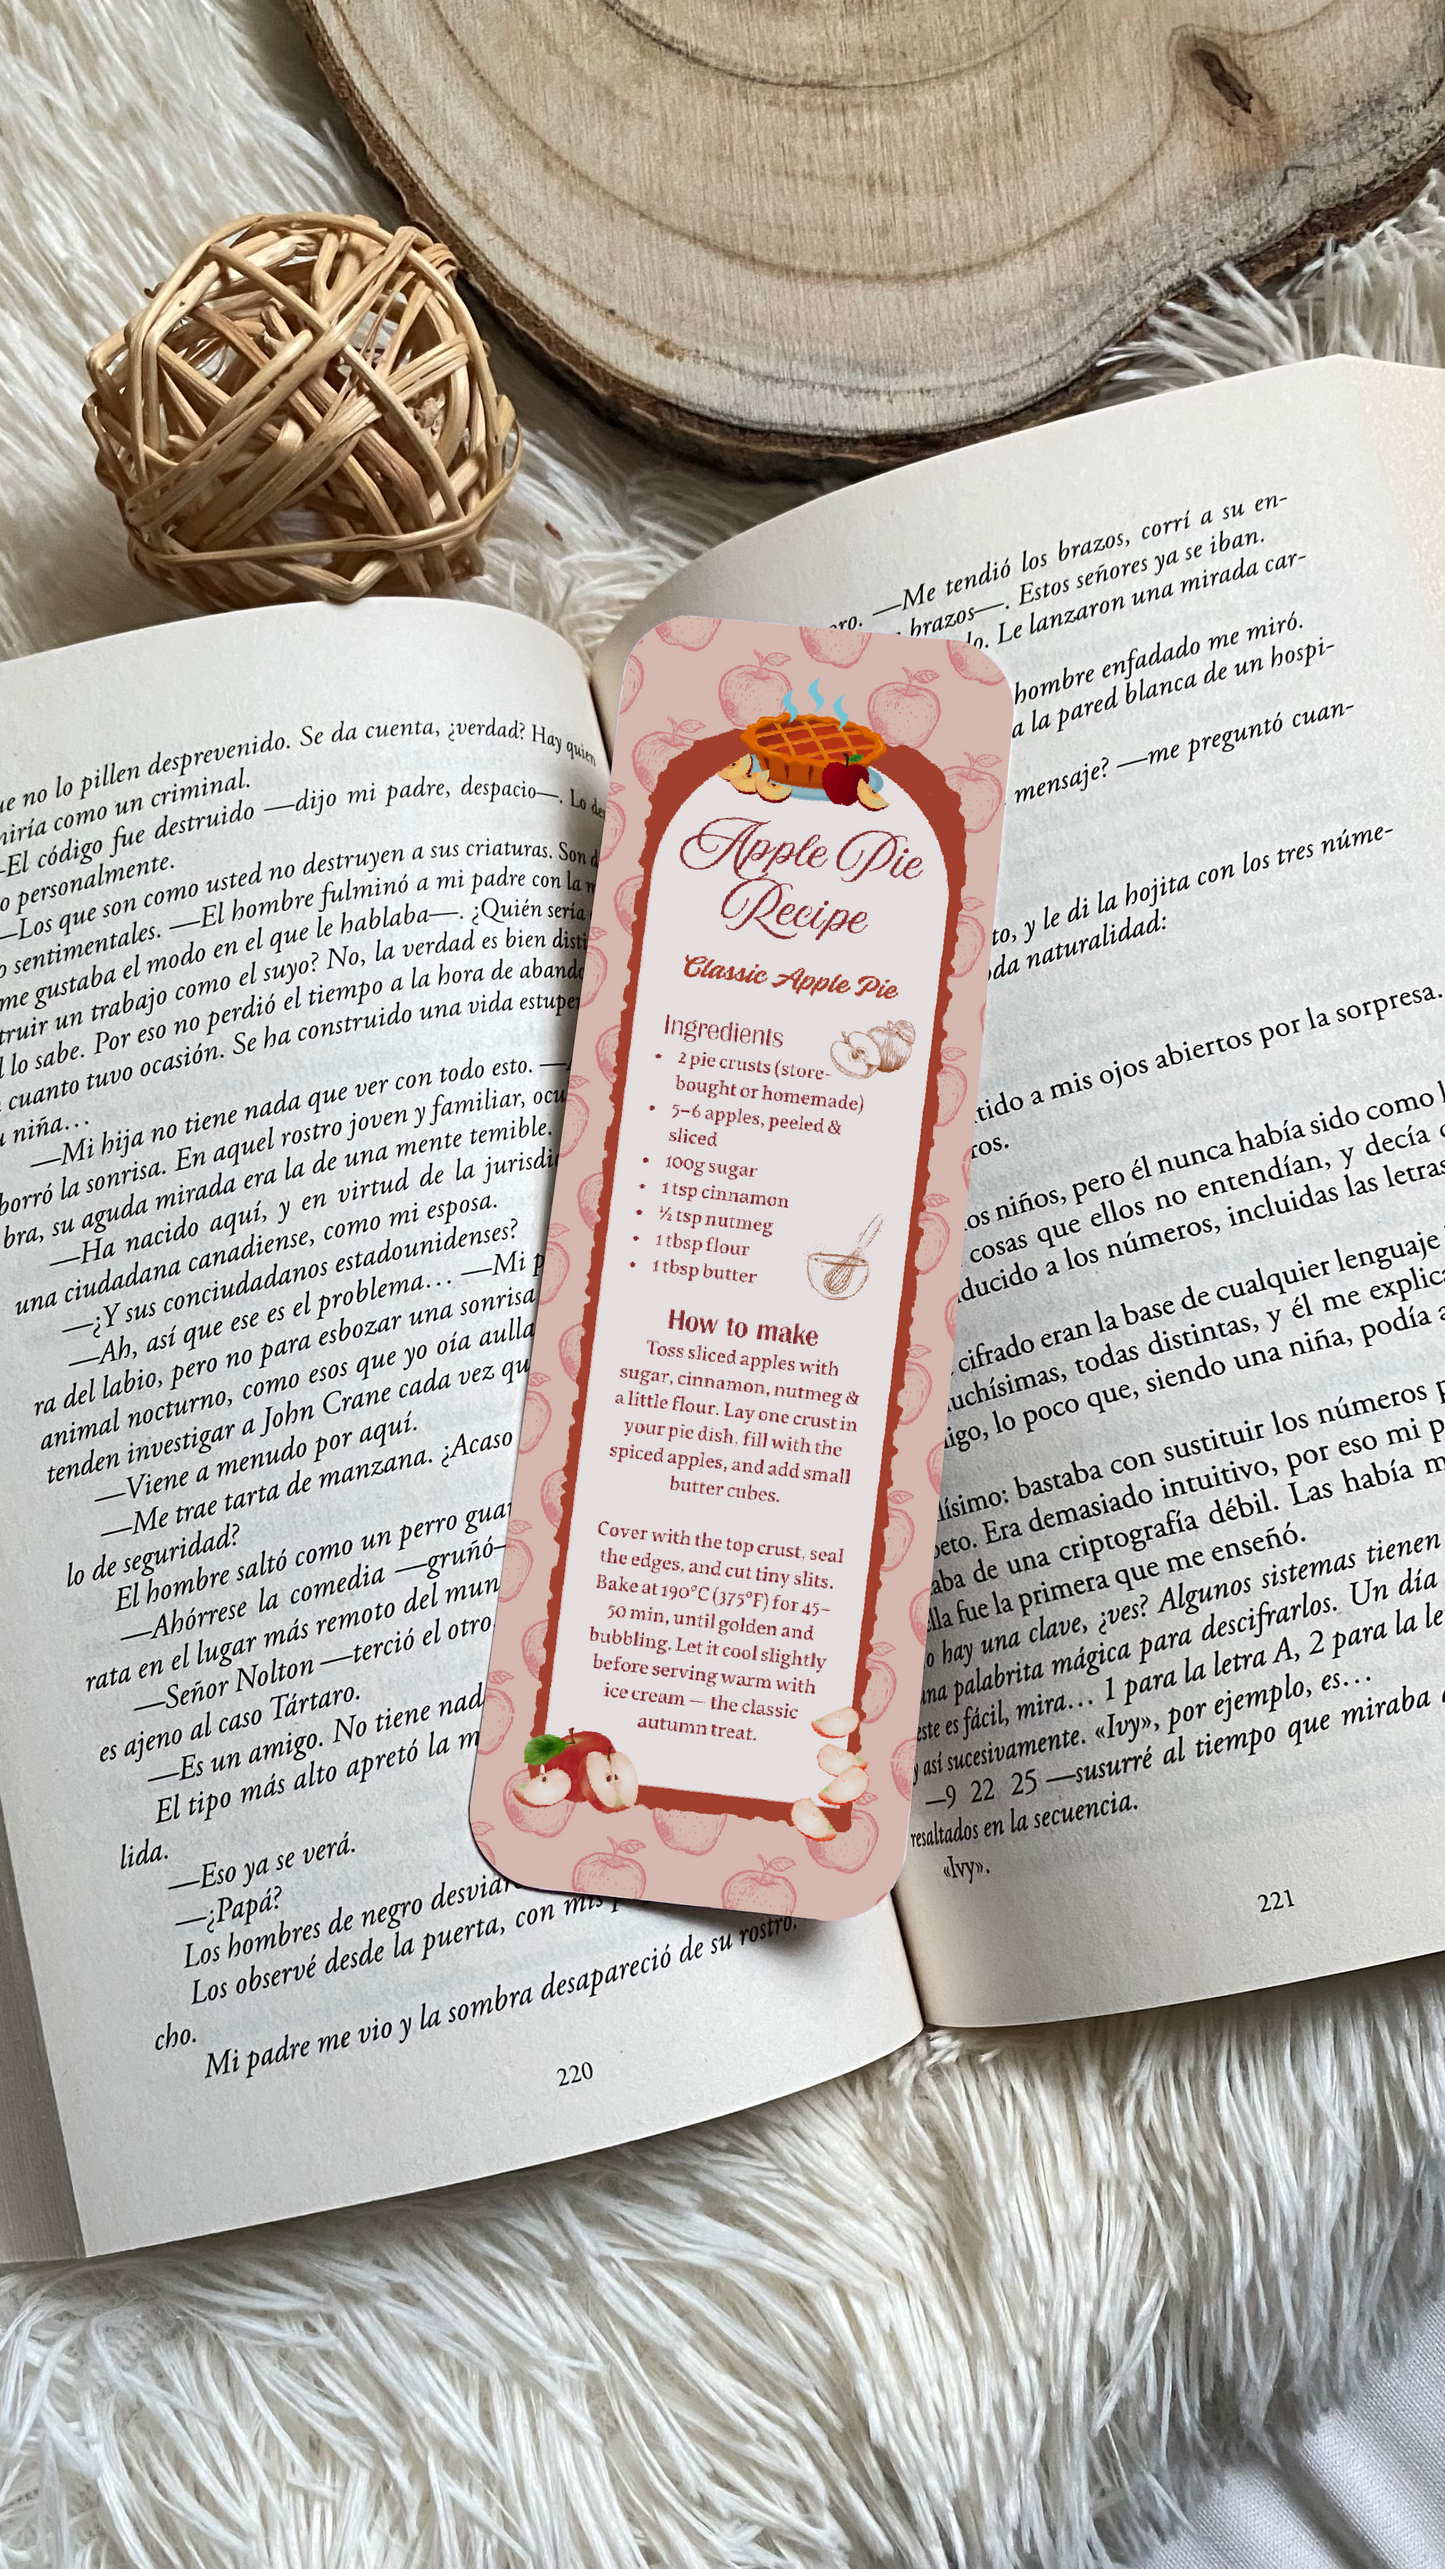 ue no lo pillen desprevenido. Se da cuenta, ¿verdad? Hay quien
iría como un criminal.
-El código fue destruido —dijo mi padre, despacio—. Lo
o personalmente.
—Los que son como usted no destruyen a sus criaturas. Son
sentimentales. —El hombre fulminó a mi padre con la
me gustaba el modo en el que le hablaba—. ¿Quién sería
truir un trabajo como el suyo? No, la verdad es bien disti
l lo sabe. Por eso no perdió el tiempo a la hora de aband
cuanto tuvo ocasión. Se ha construido una vida estupe
niña…
—Mi hija no tiene nada que ver con todo esto. —
borró la sonrisa. En aquel rostro joven y familiar, ocu
bra, su aguda mirada era la de una mente temible.
—Ha nacido aquí, y en virtud de la jurisdi
una ciudadana canadiense, como mi esposa.
—¿Y sus conciudadanos estadounidenses?
—Ah, así que ese es el problema… —Mi p
ra del labio, pero no para esbozar una sonrisa
animal nocturno, como esos que yo oía aulla
tenden investigar a John Crane cada vez qu
—Viene a menudo por aquí.
—Me trae tarta de manzana. ¿Acaso
lo de seguridad?
El hombre saltó como un perro guar
—Ahórrese la comedia —gruñó—
rata en el lugar más remoto del mun
—Señor Nolton —terció el otro
es ajeno al caso Tártaro.
—Es un amigo. No tiene nad
El tipo más alto apretó la m
lida.
—Eso ya se verá.
—¿Papá?
Los hombres de negro desviar
Los observé desde la puerta, con mis
cho.
Mi padre me vio y la sombra desapareció de su rostro.
220
Apple Pie
Recipe
Classic Apple Pie
Ingredients
• 2 pie crusts (store-
bought or homemade)
• 5–6 apples, peeled &
sliced
• 100g sugar
• 1 tsp cinnamon
• ½ tsp nutmeg
• 1 tbsp flour
• 1 tbsp butter
How to make
Toss sliced apples with
sugar, cinnamon, nutmeg &
a little flour. Lay one crust in
your pie dish, fill with the
spiced apples, and add small
butter cubes.
Cover with the top crust, seal
the edges, and cut tiny slits.
Bake at 190°C (375°F) for 45–
50 min, until golden and
bubbling. Let it cool slightly
before serving warm with
ice cream — the classic
autumn treat.
ro. —Me tendió los brazos, corrí a su en-
brazos—. Estos señores ya se iban.
do. Le lanzaron una mirada car-
hombre enfadado me miró.
a la pared blanca de un hospi-
mensaje? —me preguntó cuan-
to, y le di la hojita con los tres núme-
oda naturalidad:
tido a mis ojos abiertos por la sorpresa.
ros.
os niños, pero él nunca había sido como
cosas que ellos no entendían, y decía
ducido a los números, incluidas las letras
cifrado eran la base de cualquier lenguaje
uchísimas, todas distintas, y él me explic
igo, lo poco que, siendo una niña, podía
lísimo: bastaba con sustituir los números
beto. Era demasiado intuitivo, por eso mi p
aba de una criptografía débil. Las había m
lla fue la primera que me enseñó.
o hay una clave, ¿ves? Algunos sistemas tienen
una palabrita mágica para descifrarlos. Un día
este es fácil, mira… 1 para la letra A, 2 para la le
y así sucesivamente. «Ivy», por ejemplo, es…
—9 22 25 —susurré al tiempo que miraba
resaltados en la secuencia.
«Ivy».
221